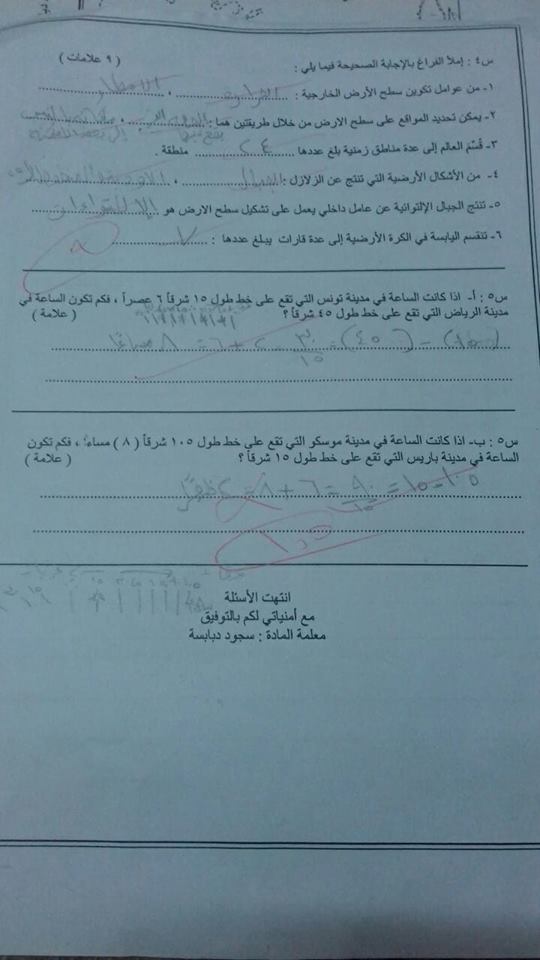 س٤ : إملأ الفراغ بالإجابة الصحيحة فيما يلي : ( ٩ علامات )
١- من عوامل تكوين سطح الأرض الخارجية : الحرارة ، الأمطار
٢- يمكن تحديد المواقع على سطح الارض من خلال طريقتين هما : ،
٣- قُسِّم العالم إلى عدة مناطق زمنية بلغ عددها ٢٤ منطقة .
٤- من الأشكال الأرضية التي تنتج عن الزلازل : الجبال ،
٥- تنتج الجبال الإلتوائية عن عامل داخلي يعمل على تشكيل سطح الارض هو الالتواءات
٦- تنقسم اليابسة في الكرة الأرضية إلى عدة قارات يبلغ عددها : ٧
س٥ : أ- اذا كانت الساعة في مدينة تونس التي تقع على خط طول ١٥ شرقاً ٦ عصراً ، فكم تكون الساعة في
مدينة الرياض التي تقع على خط طول ٤٥ شرقاً ؟ ( علامة )
(١٥) - (٤٥) = ٣٠/١٥ = ٢ + ٦ = ٨ مساءً
س٥ : ب- اذا كانت الساعة في مدينة موسكو التي تقع على خط طول ١٠٥ شرقاً ( ٨ ) مساءً ، فكم تكون
الساعة في مدينة باريس التي تقع على خط طول ١٥ شرقاً ؟ ( علامة )
١٠٥ - ١٥ = ٩٠/١٥ = ٦ + ٨ = ٢
انتهت الأسئلة
مع أمنياتي لكم بالتوفيق
معلمة المادة : سجود دبابسة